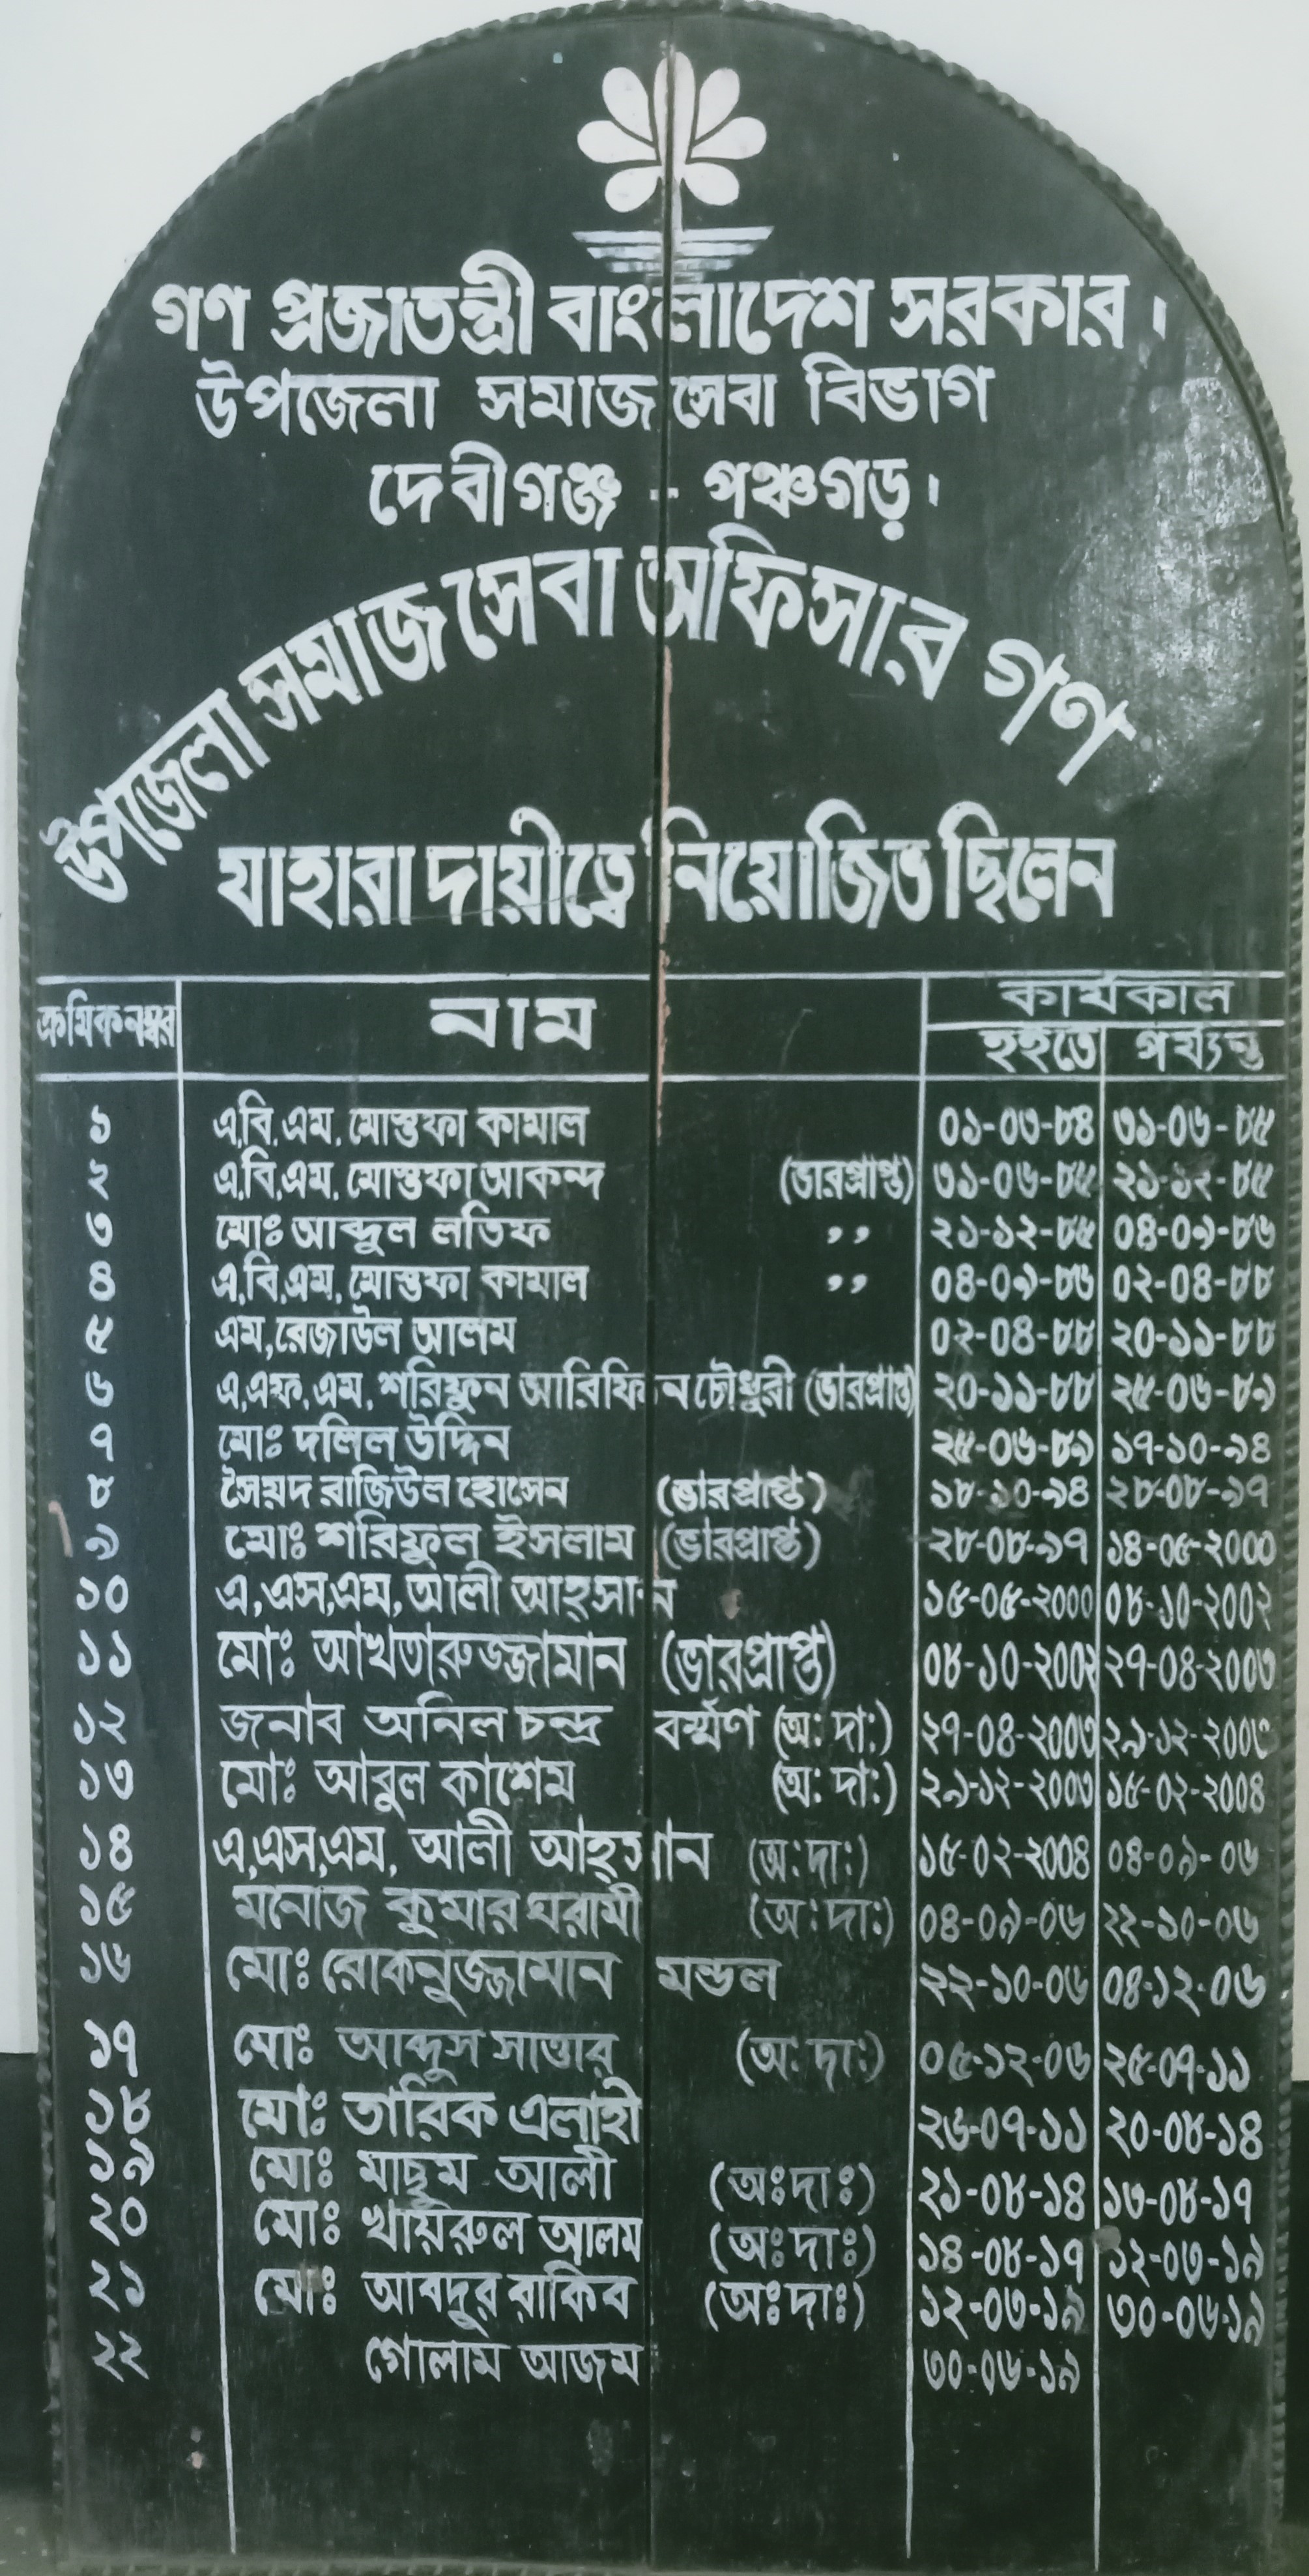 গণ প্রজাতন্ত্রী বাংলাদেশ সরকার।
উপজেলা সমাজ সেবা বিভাগ
দেবীগঞ্জ - পঞ্চগড়।
উপজেলা সমাজ সেবা অফিসার গণ
যাহারা দায়ীত্বে নিয়োজিত ছিলেন
ক্রমিক নম্বর নাম কার্যকাল
হইতে পর্য্যন্ত
১ এ,বি,এম, মোস্তফা কামাল ০১-০৩-৮৪ ৩১-০৬-৮৫
২ এ,বি,এম, মোস্তফা আকন্দ (ভারপ্রাপ্ত) ৩১-০৬-৮৫ ২১-১২-৮৫
৩ মোঃ আব্দুল লতিফ ,, ২১-১২-৮৫ ০৪-০৯-৮৬
৪ এ,বি,এম, মোস্তফা কামাল ,, ০৪-০৯-৮৬ ০২-০৪-৮৮
৫ এম,রেজাউল আলম ০২-০৪-৮৮ ২০-১১-৮৮
৬ এ,এফ,এম, শরিফুন আরিফিন চৌধুরী (ভারপ্রাপ্ত) ২০-১১-৮৮ ২৫-০৬-৮৯
৭ মোঃ দলিল উদ্দিন ২৫-০৬-৮৯ ১৭-১০-৯৪
৮ সৈয়দ রাজিউল হোসেন (ভারপ্রাপ্ত) ১৮-১০-৯৪ ২৮-০৮-৯৭
৯ মোঃ শরিফুল ইসলাম (ভারপ্রাপ্ত) ২৮-০৮-৯৭ ১৪-০৫-২০০০
১০ এ,এস,এম,আলী আহ্‌সান ১৫-০৫-২০০০ ০৮-১০-২০০২
১১ মোঃ আখতারুজ্জামান (ভারপ্রাপ্ত) ০৮-১০-২০০২ ২৭-০৪-২০০৩
১২ জনাব অনিল চন্দ্র বর্ম্মণ (অ: দা:) ২৭-০৪-২০০৩ ২৯-১২-২০০৩
১৩ মোঃ আবুল কাশেম (অ: দা:) ২৯-১২-২০০৩ ১৫-০২-২০০৪
১৪ এ,এস,এম, আলী আহ্‌সান (অ:দা:) ১৫-০২-২০০৪ ০৪-০৯-০৬
১৫ মনোজ কুমার ঘরামী (অ:দা:) ০৪-০৯-০৬ ২২-১০-০৬
১৬ মোঃ রোকনুজ্জামান মন্ডল ২২-১০-০৬ ০৪-১২-০৬
১৭ মোঃ আব্দুস সাত্তার (অ: দা:) ০৫-১২-০৬ ২৫-০৭-১১
১৮ মোঃ তারিক এলাহী ২৬-০৭-১১ ২০-০৮-১৪
১৯ মোঃ মাছুম আলী (অঃদাঃ) ২১-০৮-১৪ ১৩-০৮-১৭
২০ মোঃ খায়রুল আলম (অঃদাঃ) ১৪-০৮-১৭ ১২-০৩-১৯
২১ মোঃ আবদুর রাকিব (অঃদাঃ) ১২-০৩-১৯ ৩০-০৬-১৯
২২ গোলাম আজম ৩০-০৬-১৯